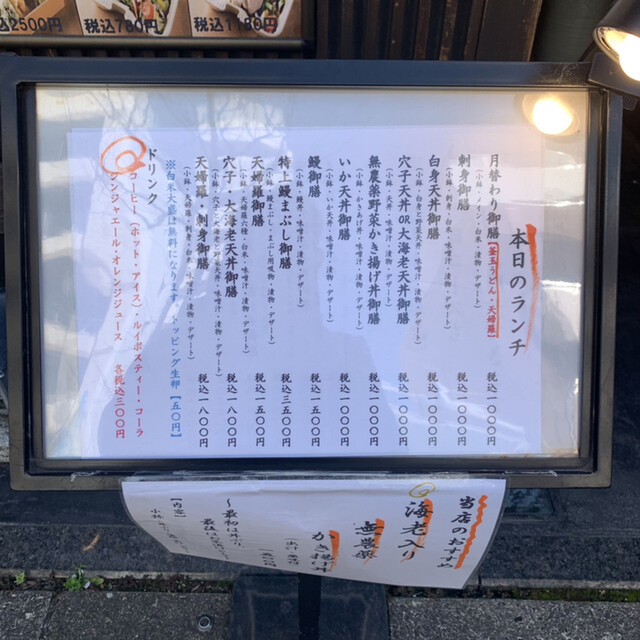 税込2500円
税込780円
税込1180円
本日のランチ
月替わり御膳【釜玉うどん 天婦羅】 税込一〇〇〇円
(小鉢・メイン・白米・味噌汁・漬物・デザート)
刺身御膳 税込一〇〇〇円
(小鉢・刺身・白米・味噌汁・漬物・デザート)
白身天丼御膳 税込一〇〇〇円
(小鉢・白身天丼・味噌汁・漬物・デザート)
穴子天丼OR大海老天丼御膳 税込一〇〇〇円
無農薬野菜かき揚げ丼御膳 税込一〇〇〇円
(小鉢・かきあげ丼・味噌汁・漬物・デザート)
いか天丼御膳 税込一〇〇〇円
(小鉢・いか天丼・味噌汁・漬物・デザート)
鰻御膳 税込一五〇〇円
(小鉢・鰻丼・味噌汁・漬物・デザート)
特上鰻まぶし御膳 税込三五〇〇円
天婦羅御膳 税込一五〇〇円
(小鉢・天婦羅・白米・味噌汁・漬物・デザート)
穴子・大海老天丼御膳 税込一八〇〇円
天婦羅・刺身御膳 税込一八〇〇円
(小鉢・天婦羅・刺身・白米・味噌汁・漬物・デザート)
※白米大盛り無料になります トッピング生卵【五〇円】
ドリンク
コーヒー(ホット・アイス)・ルイボスティー・コーラ
ジンジャエール・オレンジジュース 各税込三〇〇円
当店のおすすめ
海老入り
無農薬
かき揚げ
〜最初は
【内容】